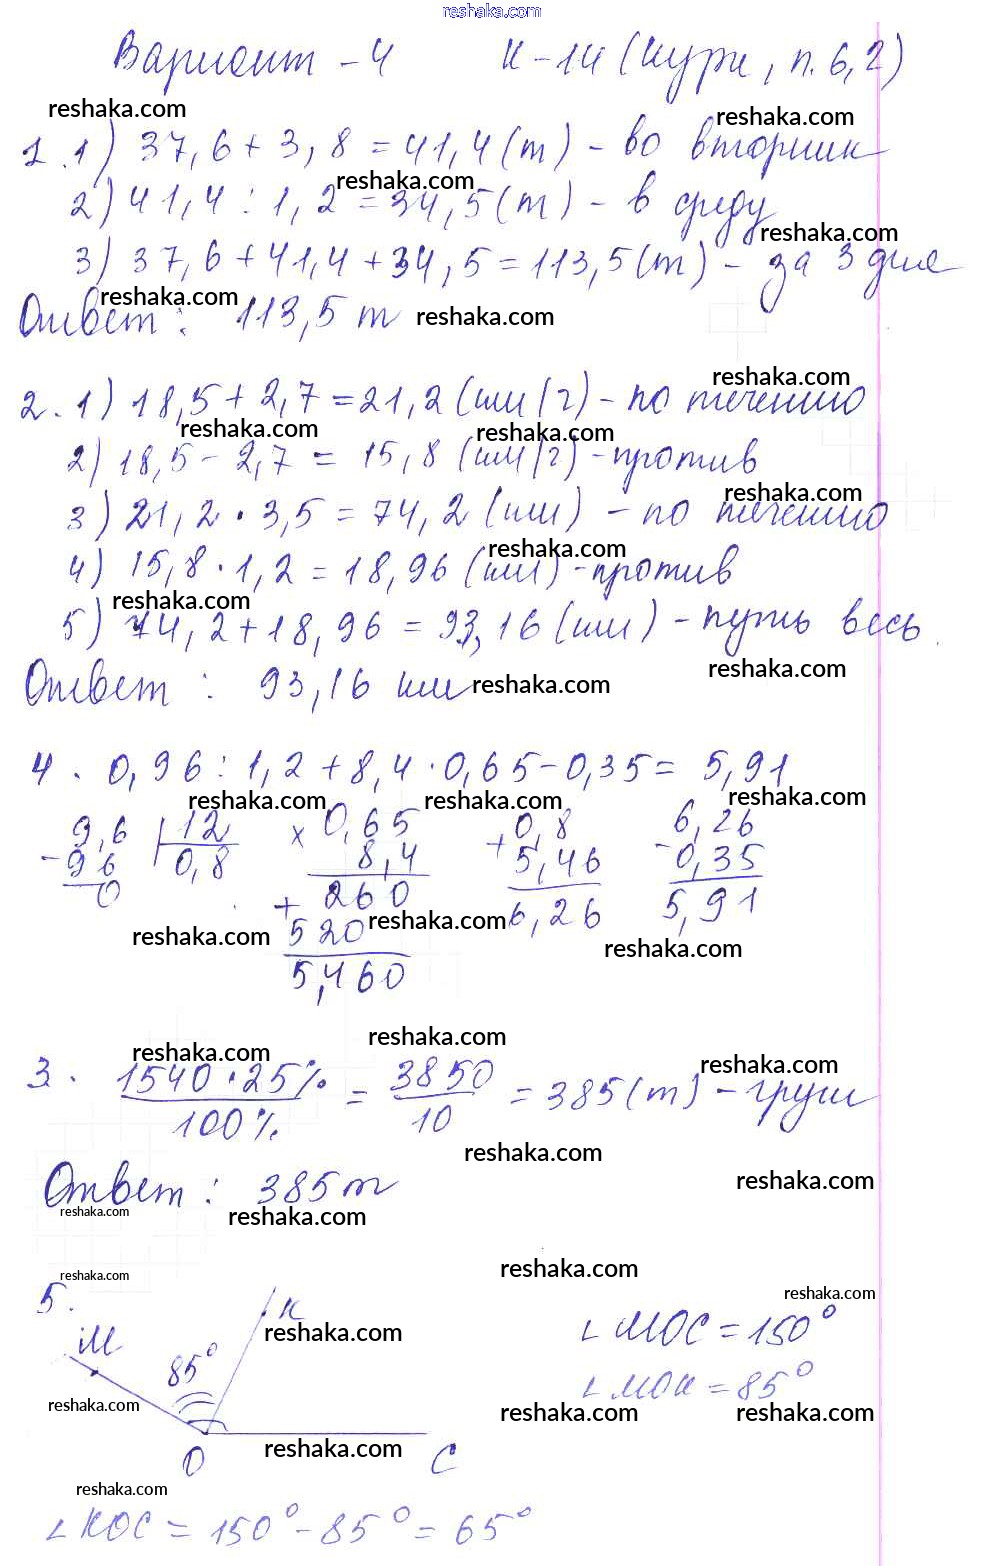 reshaka.com
Вариант - 4 К-14 (Кури, п. 6, 2)
reshaka.com reshaka.com
1. 1) 37,6 + 3,8 = 41,4 (т) - во вторник
reshaka.com
2) 41,4 : 1,2 = 34,5 (т) - в среду
reshaka.com
3) 37,6 + 41,4 + 34,5 = 113,5 (т) - за 3 дня
reshaka.com reshaka.com
Ответ: 113,5 т
reshaka.com
2. 1) 18,5 + 2,7 = 21,2 (км/ч) - по течению
reshaka.com reshaka.com
2) 18,5 - 2,7 = 15,8 (км/ч) - против
reshaka.com
3) 21,2 · 3,5 = 74,2 (км) - по течению
reshaka.com
4) 15,8 · 1,2 = 18,96 (км) - против
reshaka.com
5) 74,2 + 18,96 = 93,16 (км) - путь весь
reshaka.com reshaka.com
Ответ: 93,16 км
4. 0,96 : 1,2 + 8,4 · 0,65 - 0,35 = 5,91
reshaka.com reshaka.com reshaka.com
9,6 12 × 0,65 + 0,8 6,26
- 96 0,8 8,4 5,46 - 0,35
0 + 260 6,26 5,91
reshaka.com 520 reshaka.com reshaka.com
5,460
reshaka.com reshaka.com reshaka.com
3. 1540 · 25% / 100% = 3850 / 10 = 385 (т) - груш
reshaka.com reshaka.com
Ответ: 385 т
reshaka.com reshaka.com
reshaka.com reshaka.com
reshaka.com
5.
М К ∠ МОС = 150°
reshaka.com
85° ∠ МОК = 85°
reshaka.com reshaka.com reshaka.com
О reshaka.com С
reshaka.com
∠ КОС = 150° - 85° = 65°